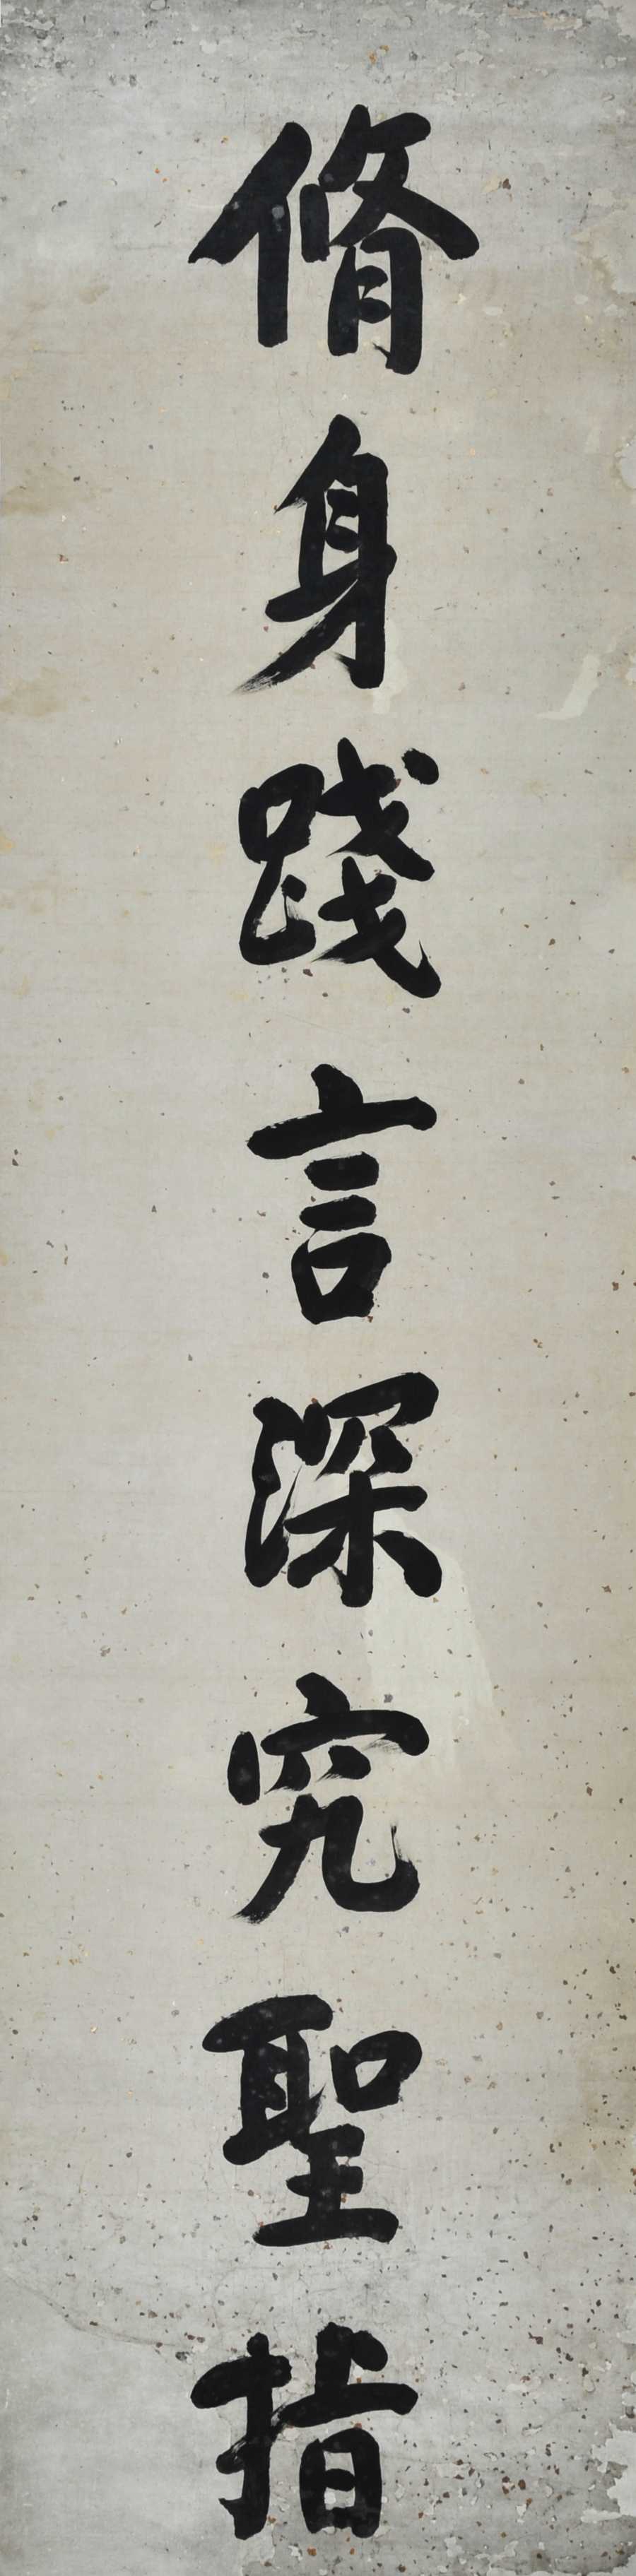 脩身踐言深究聖指